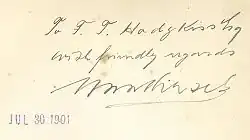 To F. T. Hodgkiss Esq
with friendly regards
JUL 30 1901